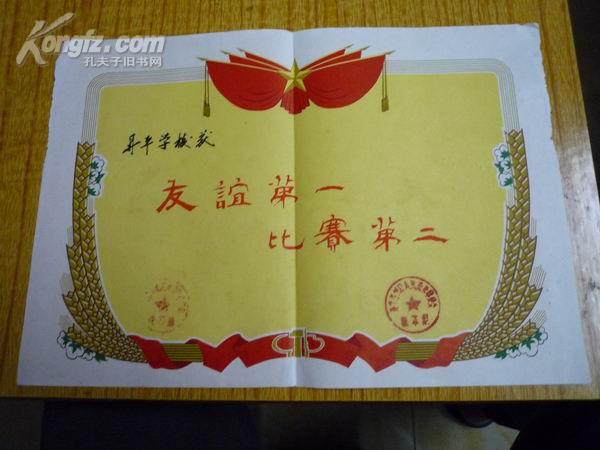 Kongfz.com
孔夫子旧书网
昇平学校教
友誼第一
比賽第二